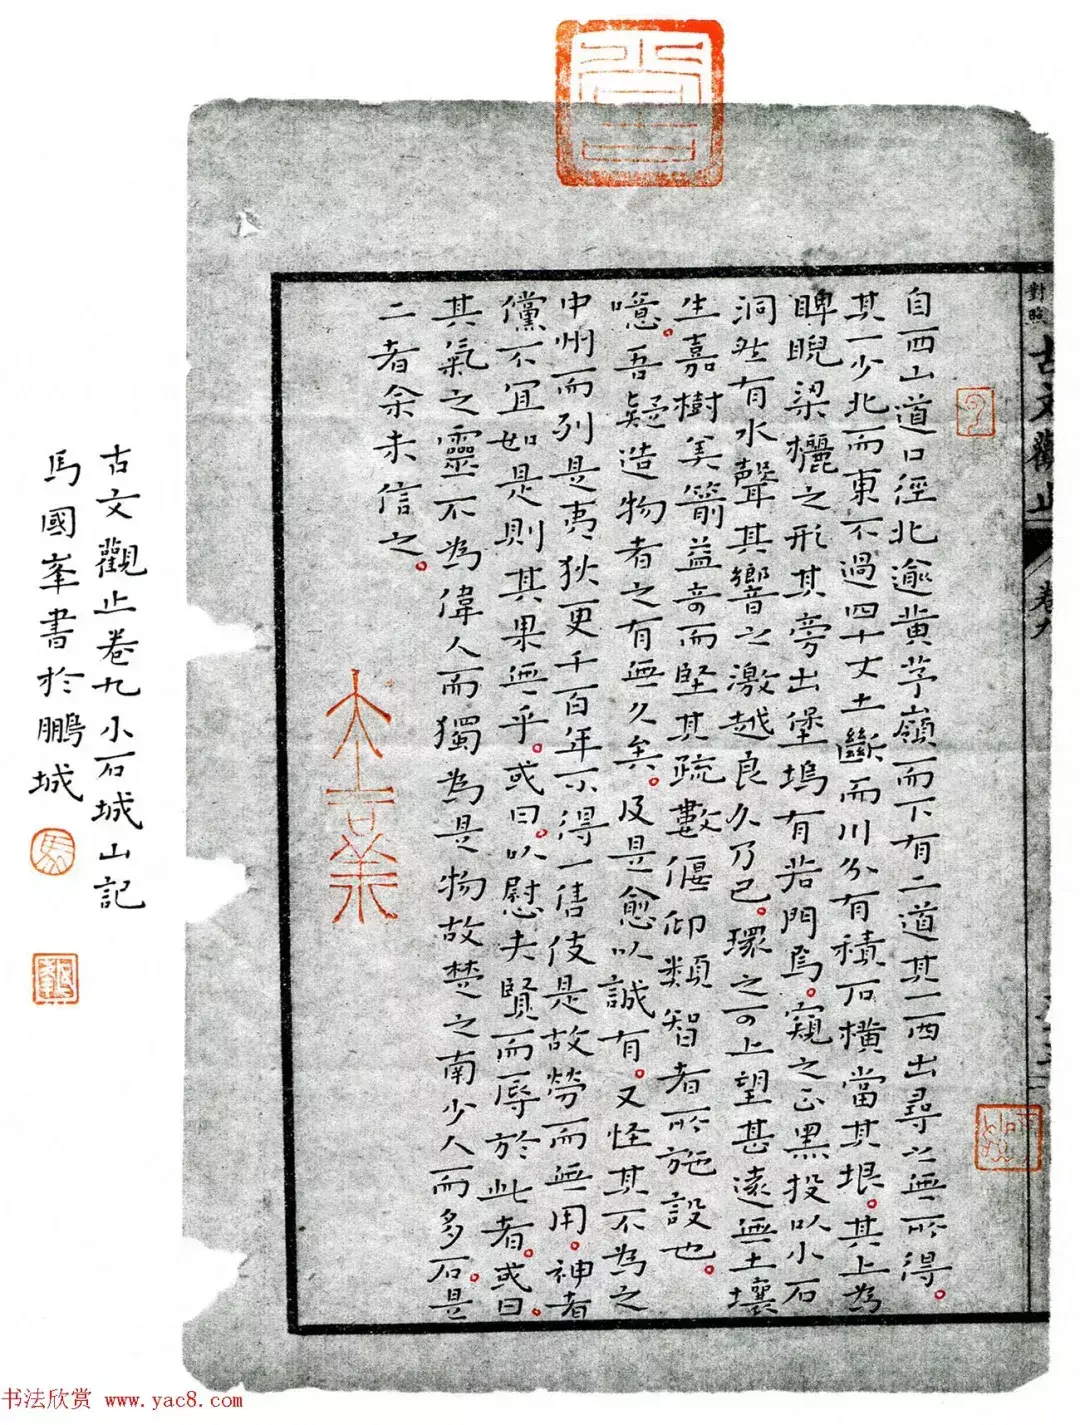 對照
古文觀止
卷九
自西山道口徑北逾黃茅嶺而下有二道其一西出尋之無所得。
其一少北而東不過四十丈土斷而川分有積石橫當其垠。其上為
睥睨梁欐之形其旁出堡塢有若門焉。窺之正黑投以小石
洞然有水聲其響之激越良久乃已。環之可上望甚遠無土壤
生嘉樹美箭益奇而堅其疏數偃仰類智者所施設也。
噫。吾疑造物者之有無久矣。及是愈以誠有。又怪其不為之
中州而列是夷狄更千百年不得一售伎是故勞而無用。神者
儻不宜如是則其果無乎。或曰。以慰夫賢而辱於此者。或曰。
其氣之靈不為偉人而獨為是物故楚之南少人而多石。是
二者余未信之。
古文觀止卷九小石城山記
馬國峯書於鵬城
馬
书法欣赏 www.yac8.com